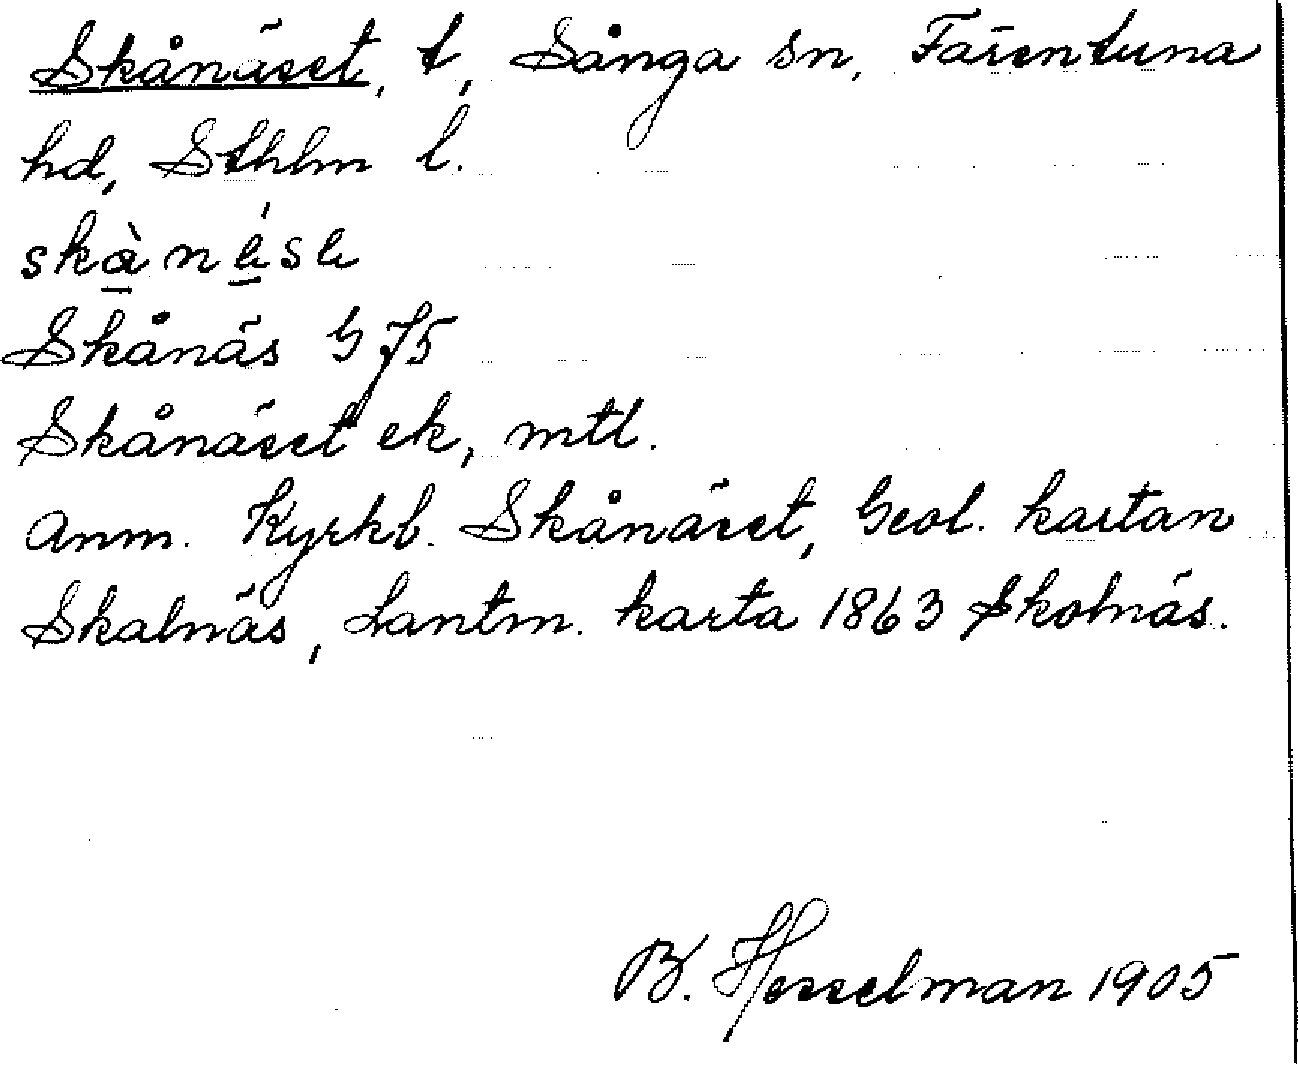 Skånäset, t, Sånga sn, Färentuna
hd, Sthlm l.
skànése
Skånäs G J5
Skånäset ek, mtl.
Anm. Kyrkb. Skånäset, Geol. kartan
Skalnäs, Lantm. karta 1863 Skolnäs.
B. Hesselman 1905